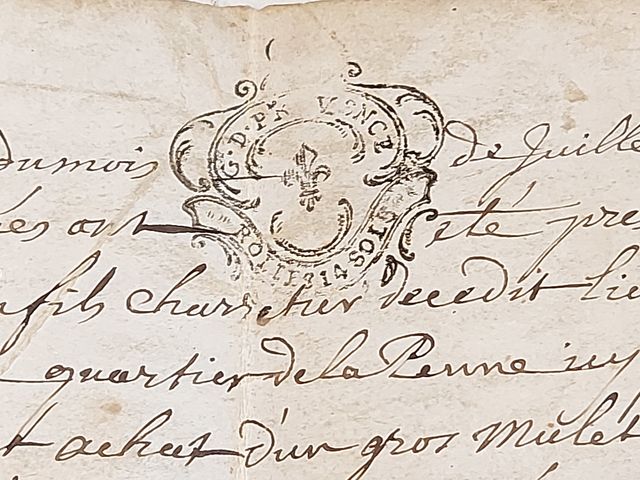 G. D. PR VENCE
ROLLES 14 SOLS
du mois de Juille
és ont été pre
fils Charretier decedit lie
quartier de la Penne
achat d'un gros Mulet